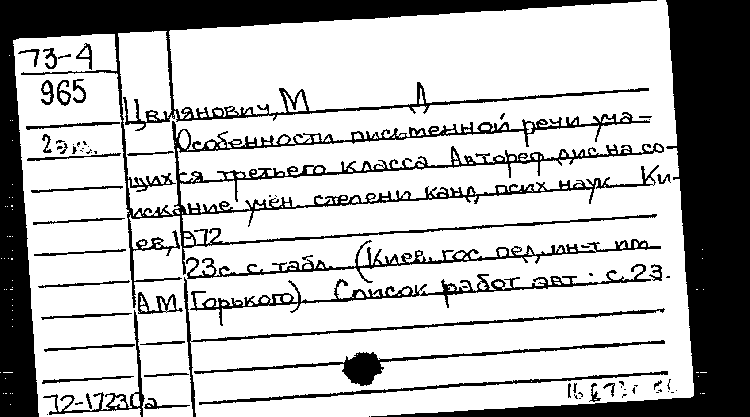 73-4
965
2 экз.
Цвиянович, М Д
Особенности письменной речи уча=
щихся третьего класса. Автореф. дис. на со-
искание учён. степени канд. псих. наук. Ки-
ев, 1972
23с. с табл. (Киев. гос. пед. ин-т им.
А.М. Горького). Список работ авт.: с. 23.
72-17230а